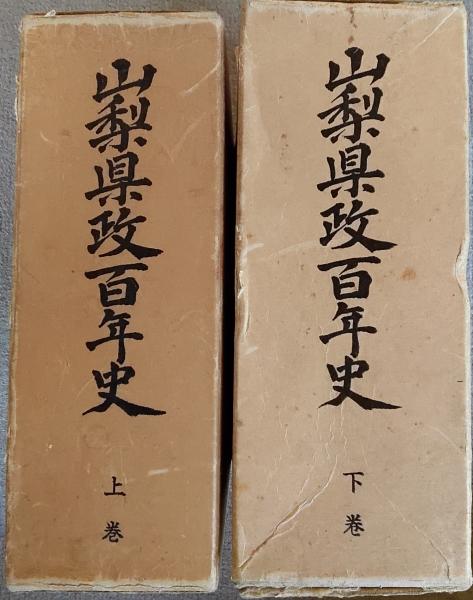 山梨県政百年史
上巻
山梨県政百年史
下巻